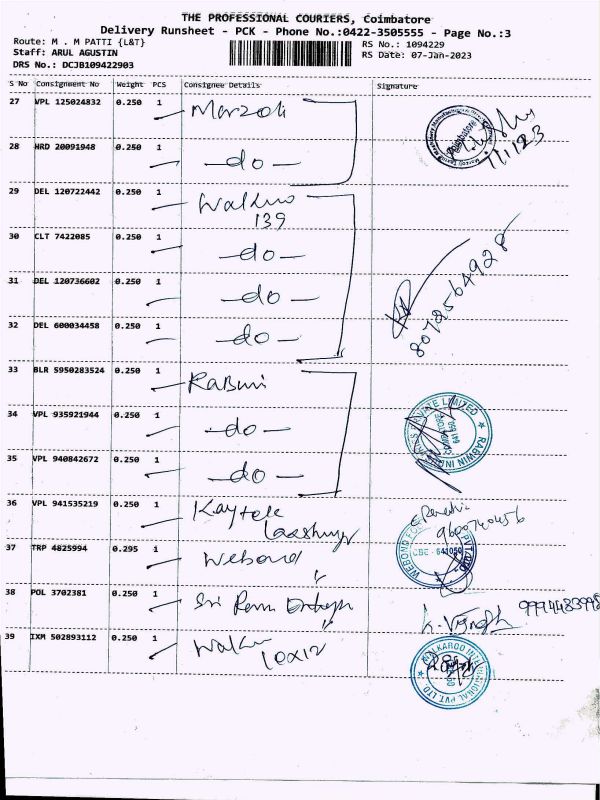 THE PROFESSIONAL COURIERS, Coimbatore
Delivery Runsheet - PCK - Phone No.:0422-3505555 - Page No.:3
Route: M . M PATTI {L&T}
RS No.: 1094229
Staff: ARUL AGUSTIN
RS Date: 07-Jan-2023
DRS No.: DCJB109422903
S No Consignment No Weight PCS Consignee Details Signature
27 VPL 125024832 0.250 1 Marzoli
7/1/23
28 HRD 20091948 0.250 1 -do-
29 DEL 120722442 0.250 1
139
30 CLT 7422085 0.250 1 -do-
31 DEL 120736602 0.250 1 -do-
8072564928
32 DEL 600034458 0.250 1 -do-
33 BLR 5950283524 0.250 1
34 VPL 935921944 0.250 1 -do-
PRIVATE LIMITED
RABWIN
35 VPL 940842672 0.250 1 -do-
36 VPL 941535219 0.250 1
9600740456
37 TRP 4825994 0.295 1 Webond
WEBOND
CBE - 641050
38 POL 3702381 0.250 1 Sri Ram
9994483998
39 IXM 502893112 0.250 1
10x12
WALKAROO INTERNATIONAL PVT. LTD.